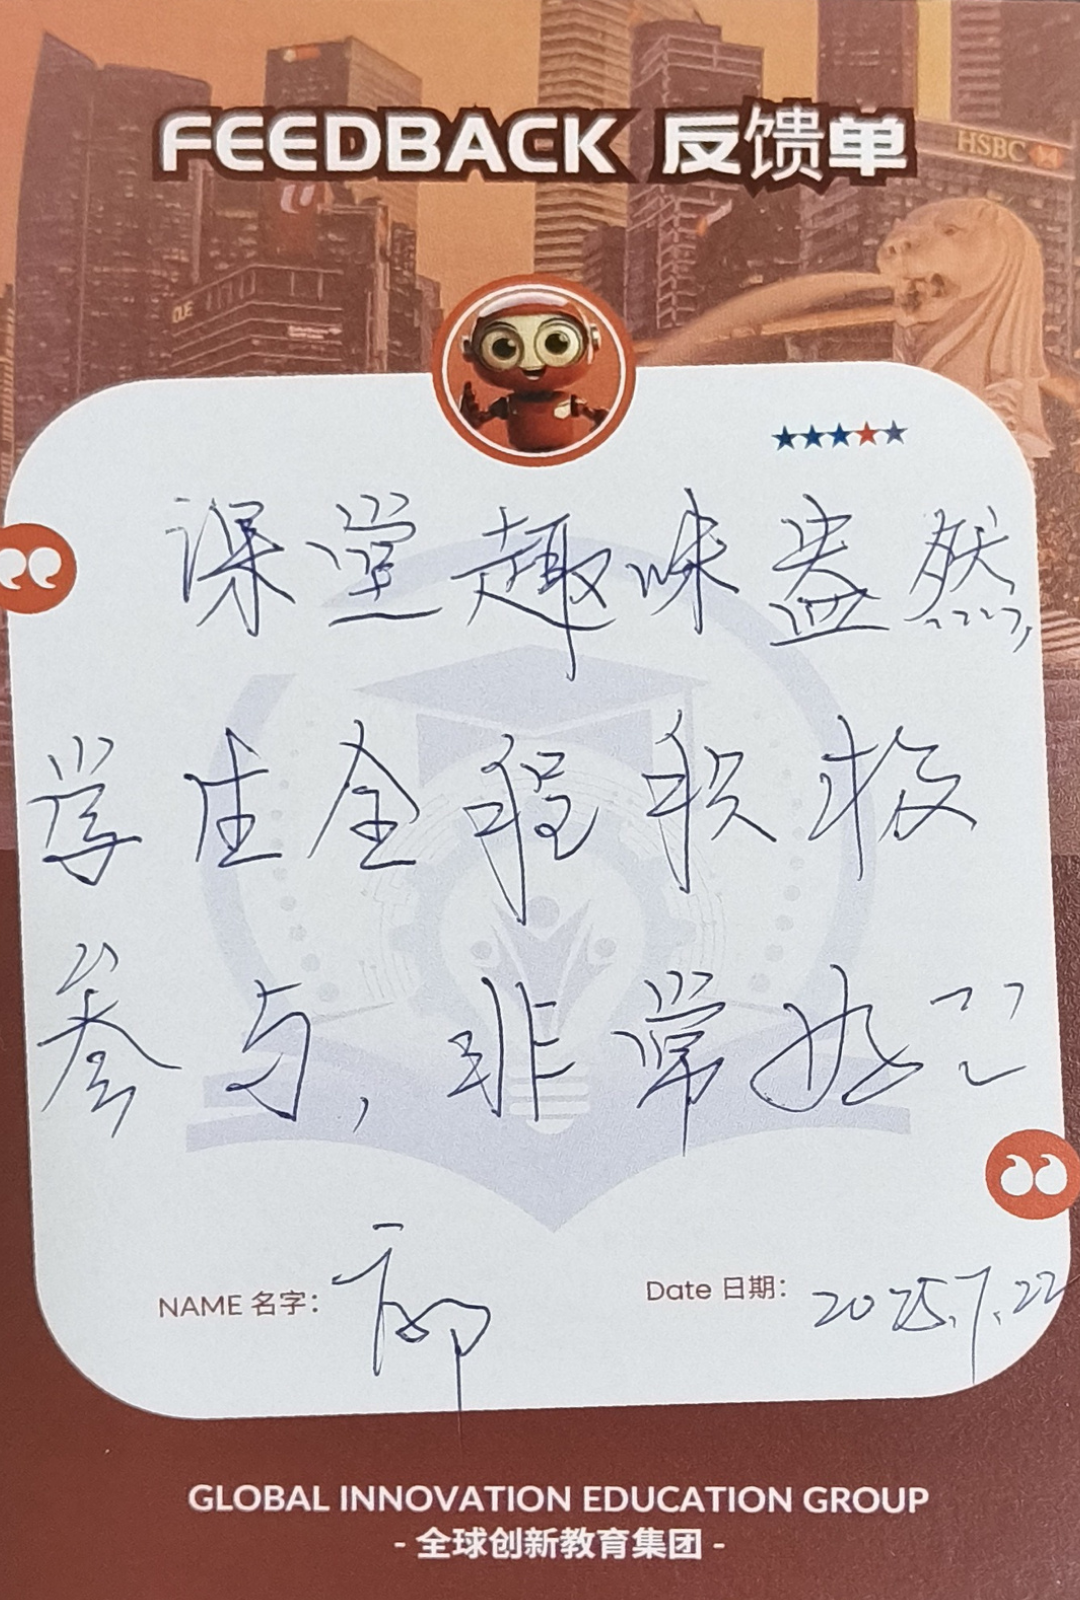 FEEDBACK 反馈单
HSBC
OUE
课堂趣味盎然,
学生全程积极
参与,非常
NAME 名字:
Date 日期: 2025.7.22
GLOBAL INNOVATION EDUCATION GROUP
- 全球创新教育集团 -